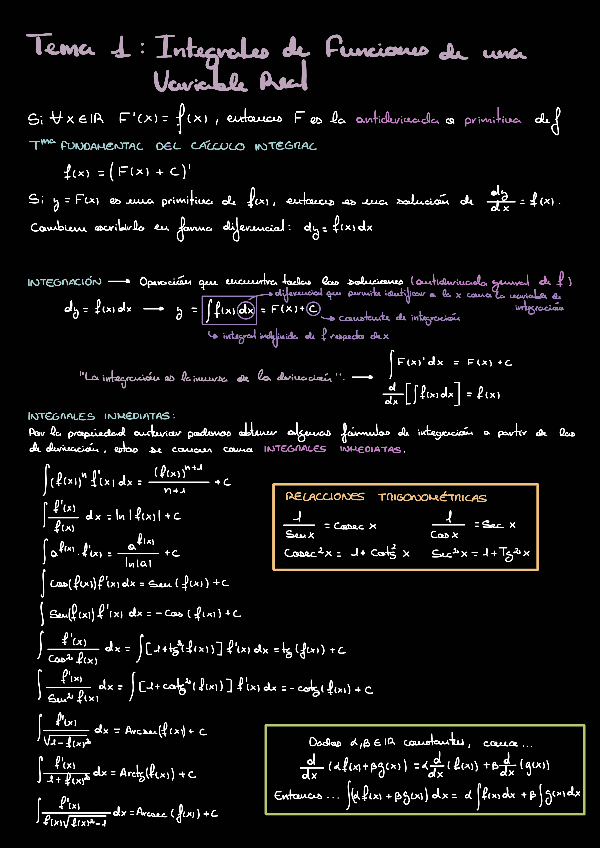 Tema 1: Integrales de Funciones de una
Variable Real
Si ∀x∈ℝ F'(x) = f(x), entonces F es la antiderivada o primitiva de f
Tma FUNDAMENTAL DEL CÁLCULO INTEGRAL
f(x) = (F(x) + C)'
Si y = F(x) es una primitiva de f(x), entonces es una solución de dy/dx = f(x).
También escribirlo en forma diferencial: dy = f(x)dx
INTEGRACIÓN → Operación que encuentra todas las soluciones (antiderivada general de f)
→ diferencial que permite identificar a la x como la variable de integración
dy = f(x)dx → y = ∫f(x)dx = F(x) + C
→ constante de integración
↳ integral indefinida de f respecto de x
"La integración es la inversa de la derivación". → ∫F(x)'dx = F(x) + C
d/dx [∫f(x)dx] = f(x)
INTEGRALES INMEDIATAS:
Por la propiedad anterior podemos obtener algunas fórmulas de integración a partir de las
de derivación, estas se conocen como INTEGRALES INMEDIATAS.
∫(f(x))ⁿ f'(x) dx = (f(x))ⁿ⁺¹/(n+1) + C
∫ f'(x)/f(x) dx = ln|f(x)| + C
∫a^f(x) · f'(x) = a^f(x)/ln|a| + C
∫Cos(f(x)) f'(x) dx = Sen(f(x)) + C
∫Sen(f(x)) f'(x) dx = -Cos(f(x)) + C
∫ f'(x)/Cos² f(x) dx = ∫[1+tg²(f(x))] f'(x) dx = tg(f(x)) + C
∫ f'(x)/Sen² f(x) dx = ∫[1+cotg²(f(x))] f'(x) dx = -cotg(f(x)) + C
∫ f'(x)/√(1-f(x)²) dx = Arcsen(f(x)) + C
∫ f'(x)/(1+f(x)²) dx = Arctg(f(x)) + C
∫ f'(x)/(f(x)√(f(x)²-1)) dx = Arcsec(f(x)) + C
RELACCIONES TRIGONOMÉTRICAS
1/Sen x = Cosec x    1/Cos x = Sec x
Cosec²x = 1+Cotg² x    Sec²x = 1+Tg²x
Dadas α,β∈ℝ constantes, como...
d/dx (αf(x)+βg(x)) = α d/dx (f(x)) + β d/dx (g(x))
Entonces... ∫(αf(x)+βg(x)) dx = α∫f(x)dx + β∫g(x)dx